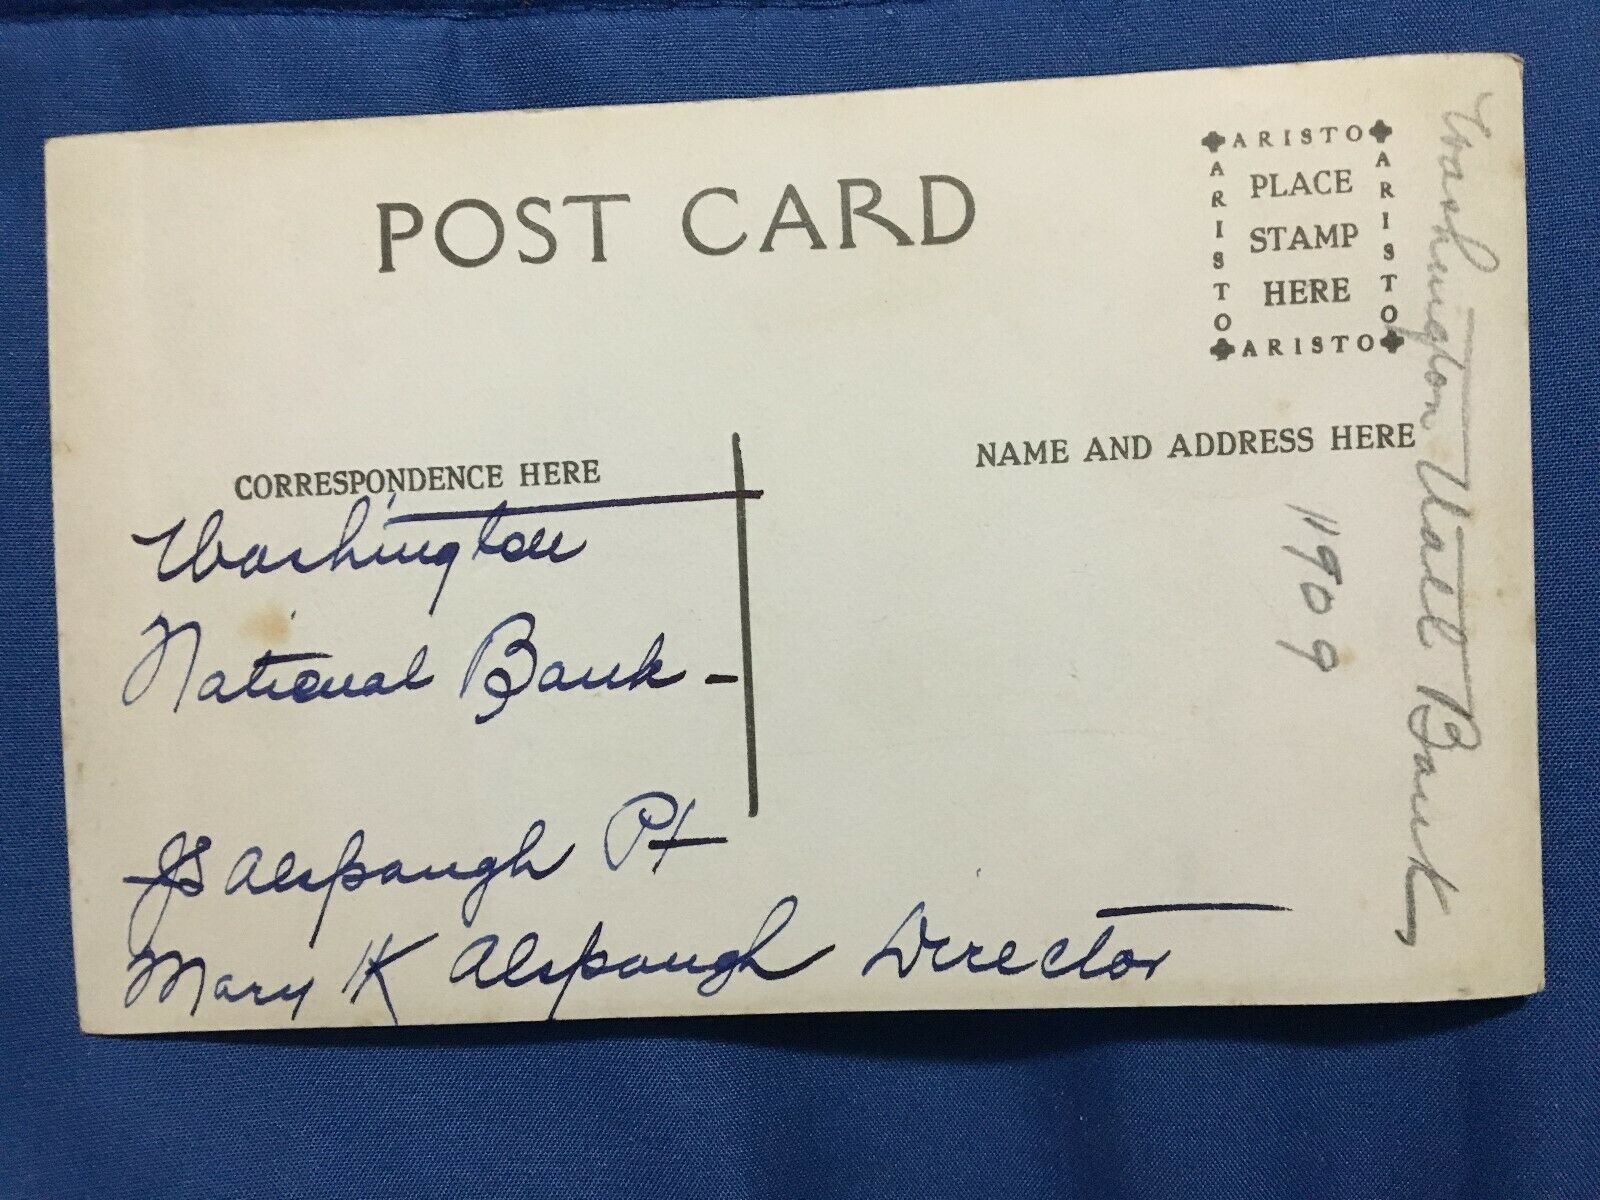 POST CARD
ARISTO
ARISTO
PLACE
STAMP
HERE
ARISTO
ARISTO
CORRESPONDENCE HERE
NAME AND ADDRESS HERE
Washington
National Bank -
JS Alspaugh Pt
Mary K Alspaugh Director
Washington Natl Bank
1909